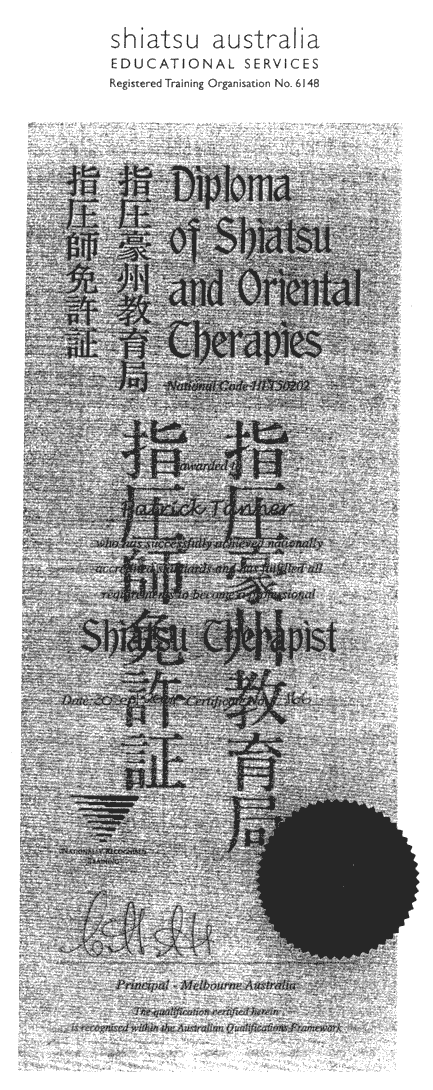 shiatsu australia
EDUCATIONAL SERVICES
Registered Training Organisation No. 6148
指圧豪州教育局
指圧師免許証
Diploma
of Shiatsu
and Oriental
Therapies
National Code HLT50202
指圧豪州教育局
指圧師免許証
awarded to
Patrick Tanner
who has successfully achieved nationally
accredited standards and has fulfilled all
requirements to become a professional
Shiatsu Therapist
Date: 20 Certificate No.
NATIONALLY RECOGNISED
TRAINING
Principal - Melbourne Australia
The qualification certified herein
is recognised within the Australian Qualifications Framework